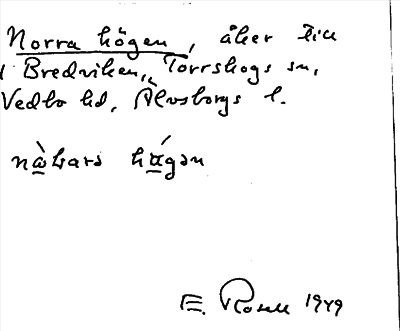 Norra högen, åker till
Bredviken, Torrskogs sn,
Vedbo hd, Älvsborgs l.
E. Rosell 1949